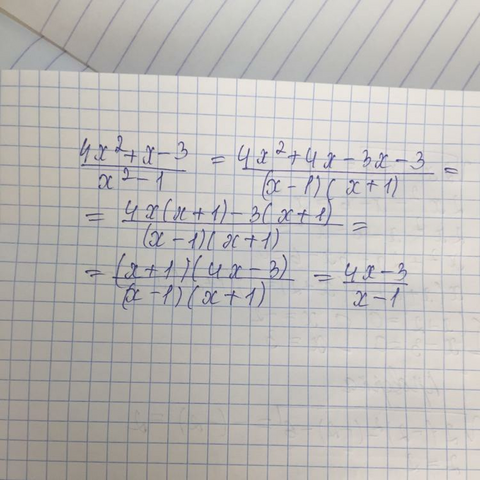 (4x²+x-3)/(x²-1) = (4x²+4x-3x-3)/((x-1)(x+1)) =
= (4x(x+1)-3(x+1))/((x-1)(x+1)) =
= ((x+1)(4x-3))/((x-1)(x+1)) = (4x-3)/(x-1)